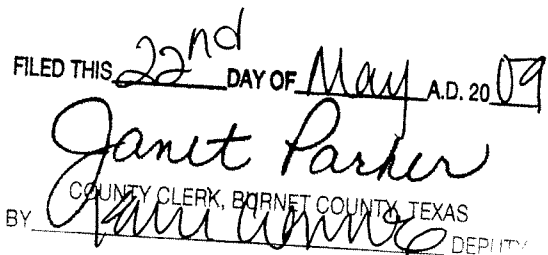 FILED THIS 22nd DAY OF May A.D. 20 09
Janet Parker
COUNTY CLERK, BURNET COUNTY, TEXAS
BY DEPUTY